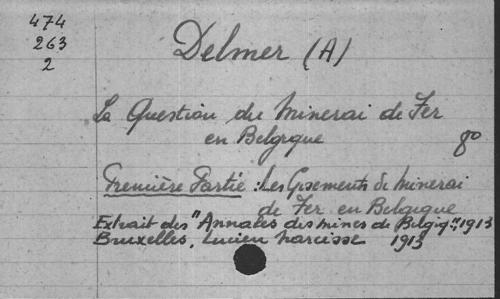 474
263
2
Delmer (A)
La Question du Minerai de Fer
en Belgique
8o
Première Partie : Les Gisements de Minerai
de Fer en Belgique
Extrait des "Annales des mines de Belgiq": 1913
Bruxelles, Lucien Narcisse 1913